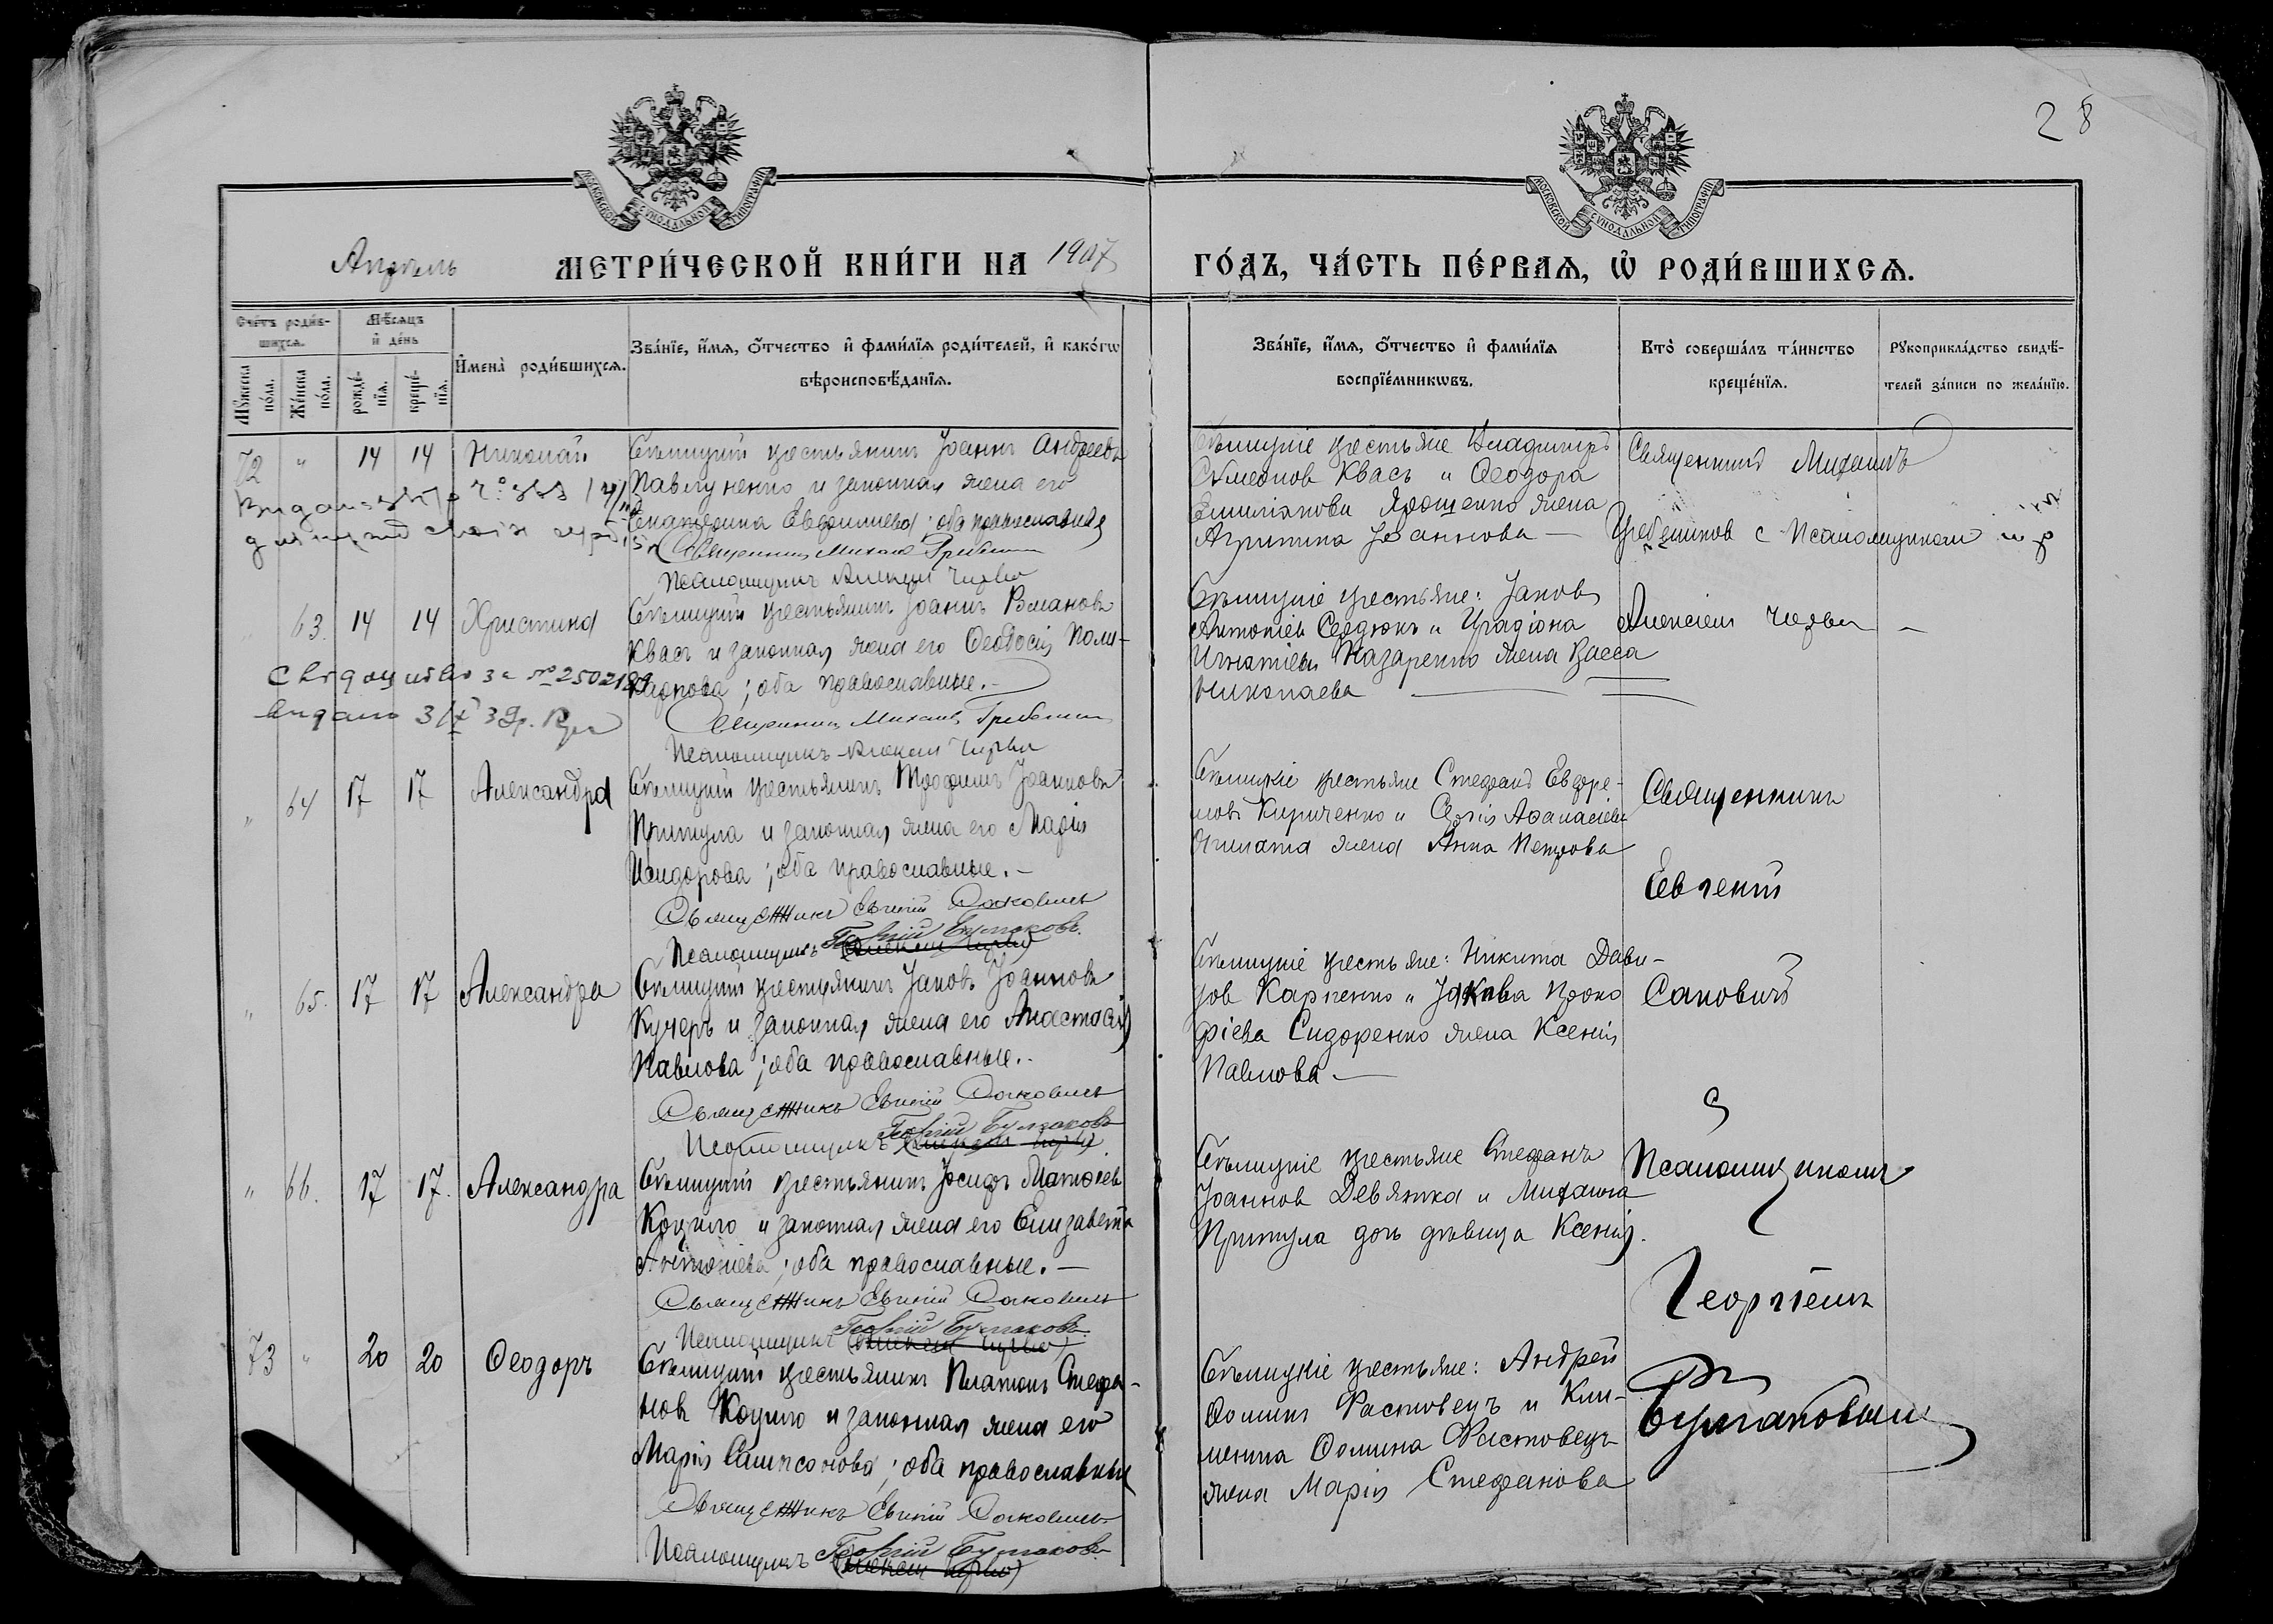 28
МОСКОВСКОЙ СѴНОДАЛЬНОЙ ТИПОГРАФІИ
МОСКОВСКОЙ СѴНОДАЛЬНОЙ ТИПОГРАФІИ
Апрель МЕТРИ́ЧЕСКОЙ КНИ́ГИ НА 1907 ГО́ДЪ, ЧА́СТЬ ПЕ́РВАЯ, Ѡ РОДИ́ВШИХСЯ.
Сче́тъ роди́вшихся.
Мꙋ́жеска по́ла.
Же́нска по́ла.
Мѣ́сяцъ и де́нь
рожде́нїя.
креще́нїя.
И҆мена̀ роди́вшихся.
Зва́нїе, и҆́мя, ѻ҆́тчество и҆ фами́лїя роди́телей, и҆ како́гѡ
вѣроисповѣ́данїя.
Зва́нїе, и҆́мя, ѻ҆́тчество и҆ фами́лїя
воспрїе́мникѡвъ.
Кто̀ соверша́лъ та́инство
креще́нїя.
Рꙋкоприкла́дство свидѣ́-
телей за́писи по жела́нїю.
72 " 14 14 Николай
Крестьянинъ Іоаннъ Андреевъ
Павлученко и законная жена его
Екатерина Евфимиева; оба православные
Священникъ Михаилъ Гребенниковъ
Псаломщикъ Алексей Червы
крестьяне Владимиръ
Сѵмеонов Квасъ и Ѳеодора
Емилианова Ярошенко жена
Агрипина Іоаннова —
Священникъ Михаилъ
Гребенников с Псаломщиком
" 63. 14 14 Христина
крестьянинъ Іоаннъ Романовъ
Квасъ и законная жена его Ѳеодосія Поли-
карпова; оба православные. —
Священникъ Михаилъ Гребенниковъ
Псаломщикъ Алексей Червы
Свідоцтво за № 2502189
видано
крестьяне: Іаковъ
Антоніев Сердюкъ и Иродіона
Игнатіева Назаренко жена Васса
Николаева
Алексіем Червы —
" 64 17 17 Александра
крестьянинъ Трофимъ Іоанновъ
Притула и законная жена его Марія
Исидорова; оба православные. —
Священникъ Евгеній Саковичъ
Псаломщикъ Георгій Булгаковъ
крестьяне Стефанъ Евфре-
мовъ Кириченко и Сергія Аѳанасіева
жена Анна Петрова
Священникъ
Евгений
" 65. 17 17 Александра
крестьянинъ Іаковъ Іоанновъ
Кучеръ и законная жена его Анастасія
Павлова; оба православные. -
Священникъ Евгеній Саковичъ
Псаломщикъ Георгій Булгаковъ
крестьяне: Никита Дави-
дов Карпенко и Іакова Проко
фіева Сидоренко жена Ксенія
Павлова —
Саковичъ
с
" 66. 17 17. Александра
крестьянинъ Іосифъ Матѳіевъ
Коцило и законная жена его Елизавета
Антоніева; оба православные. —
Священникъ Евгеній Саковичъ
Псаломщикъ Георгій Булгаковъ
крестьяне Стефанъ
Іоаннов Девятка и Михаила
Притула дочь дѣвица Ксенія.
Псаломщикомъ
Георгіемъ
73 " 20 20 Ѳеодоръ
крестьянинъ Платонъ Стефа-
новъ Коцило и законная жена его
Марія Сампсонова; оба православные
Священникъ Евгеній Саковичъ
Псаломщикъ Георгій Булгаковъ
крестьяне: Андрей
Ѳомин Фастовецъ и Кли-
мента Ѳомина Фастовецъ
жена Марія Стефанова
Булгаковым